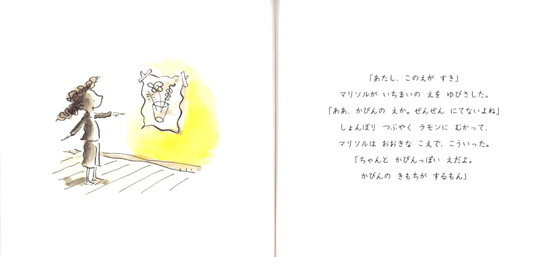 「あたし、このえが すき」
マリソルが いちまいの えを ゆびさした。
「ああ、かびんの えか。ぜんぜん にてないよね」
しょんぼり つぶやく ラモンに むかって、
マリソルは おおきな こえで、こういった。
「ちゃんと かびんっぽい えだよ。
かびんの きもちが するもん」